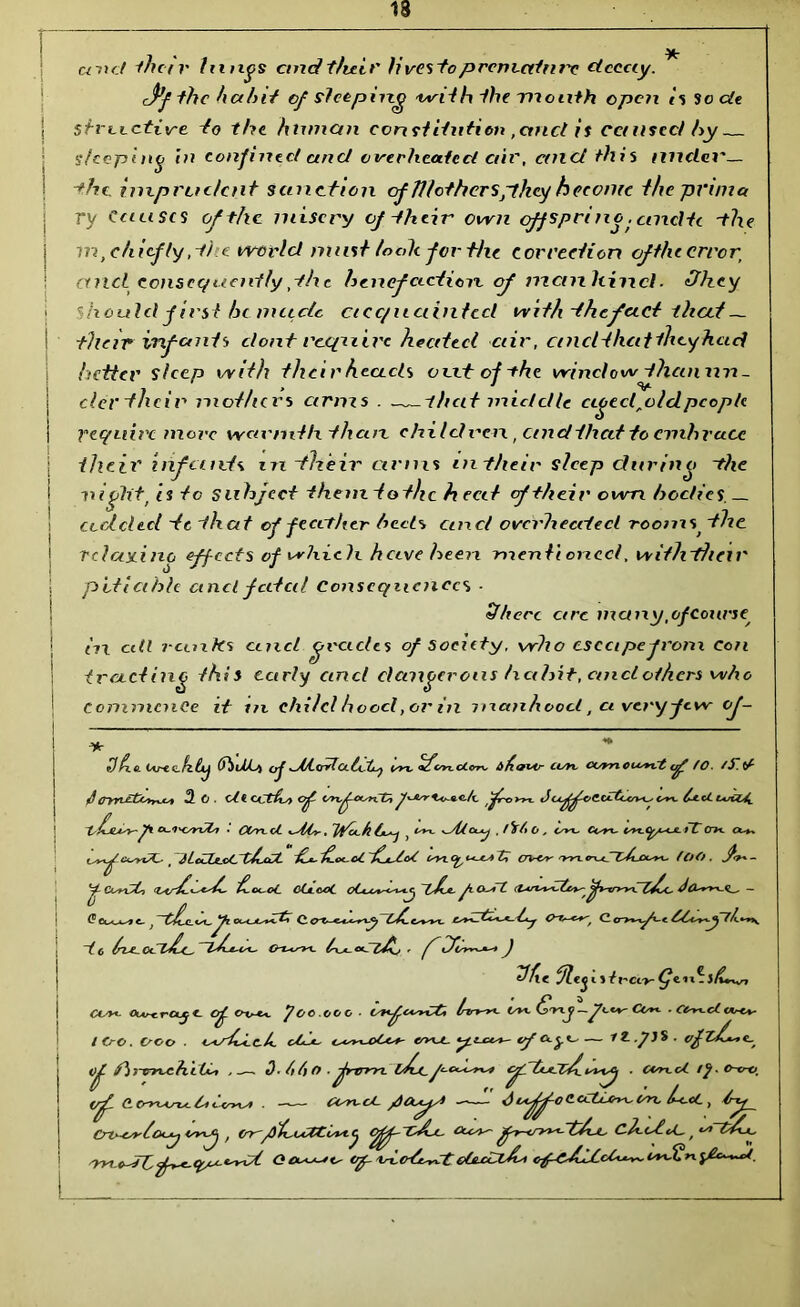 18
and their lungs and their lives to premature decay. *
If the habit of sleeping with the mouth open is so de
structive to the human constitution, and is caused by —
sleeping in confined and overheated air, and this under—
the imprudent sanction of Mothers, they become the prima
ry causes of the misery of their own offspring; and to the
m, chiefly, the world must look for the correction of the error,
and consequently, the benefaction of mankind. They
should first be made acquainted with the fact that —
their infants dont require heated air, and that they had
better sleep with their heads out of the window than un-
der their mothers arms . — that middle aged, old people
require more warmth than children, and that to embrace
their infants in their arms in their sleep during the
night, is to subject them to the heat of their own bodies —
added to that of feather beds and overheated rooms, the
relaxing effects of which have been mentioned, with their
pitiable and fatal consequences.
There are many, of course,
in all ranks and grades of society, who escape from con
tracting this early and dangerous habit, and others who
commence it in childhood, or in manhood, a very few of-
* The weekly Bills of Mortality in London show an amount of 10. 15. or
sometimes 20. deaths of infants per week, from Suffocation, in bed with
their parents : and Mr. Wakley, in May, 1860, in an inquest on an
infant, Stated that "he had held inquests over more than 100. In-
fants, which had died the past winter from the Same —
Cause, their parents Covering them entirely over, Compelling them
to breathe their own breath. (Times)
The Registrar Genl's Return
an average of over 700.000. infants in Engl — year . and over
100.000. which die under one year of age — 12.738. of the
of Bronchitis , — 3.660. from the pains of teething . and 19.000.
of Convulsions . — and Says — "Suffocation in bed, by
overlaying, or Shutting off the air from the Child, is the
most frequent Cause of violent deaths of Children in England.